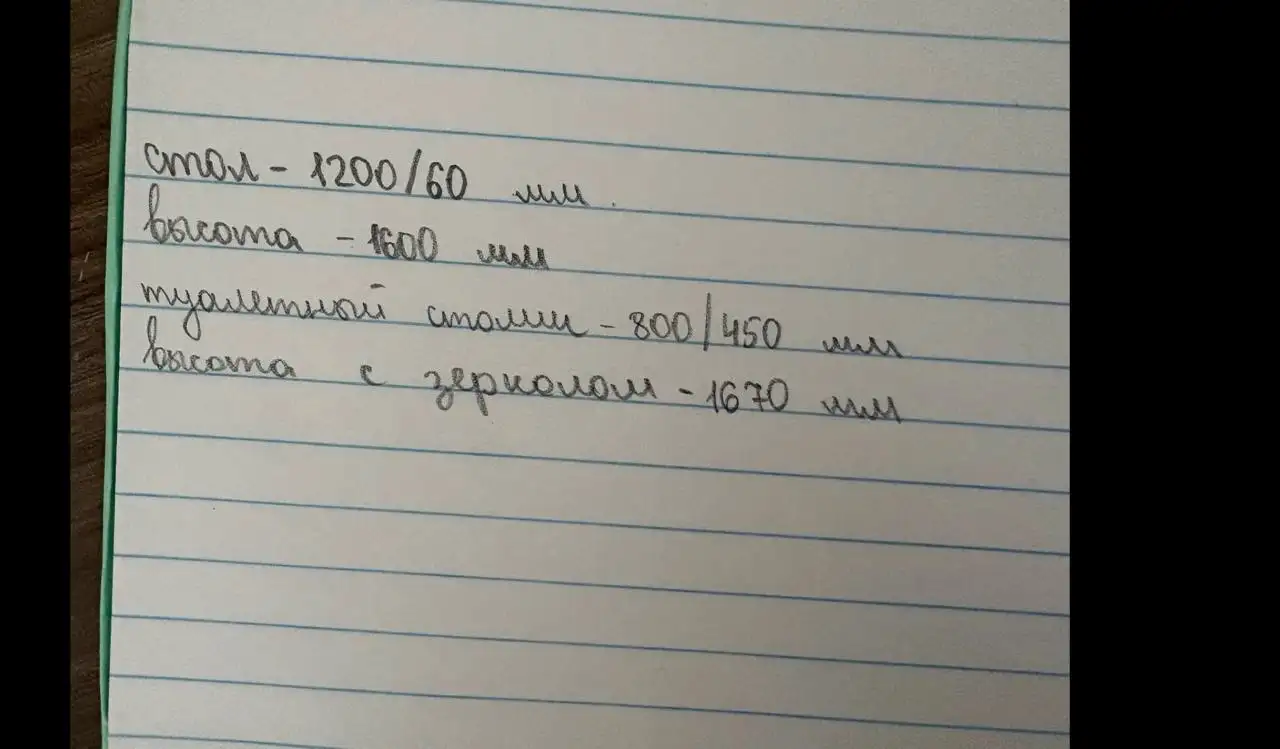 стол - 1200/60 мм.
высота - 1600 мм
туалетный столик - 800/450 мм
высота с зеркалом - 1670 мм